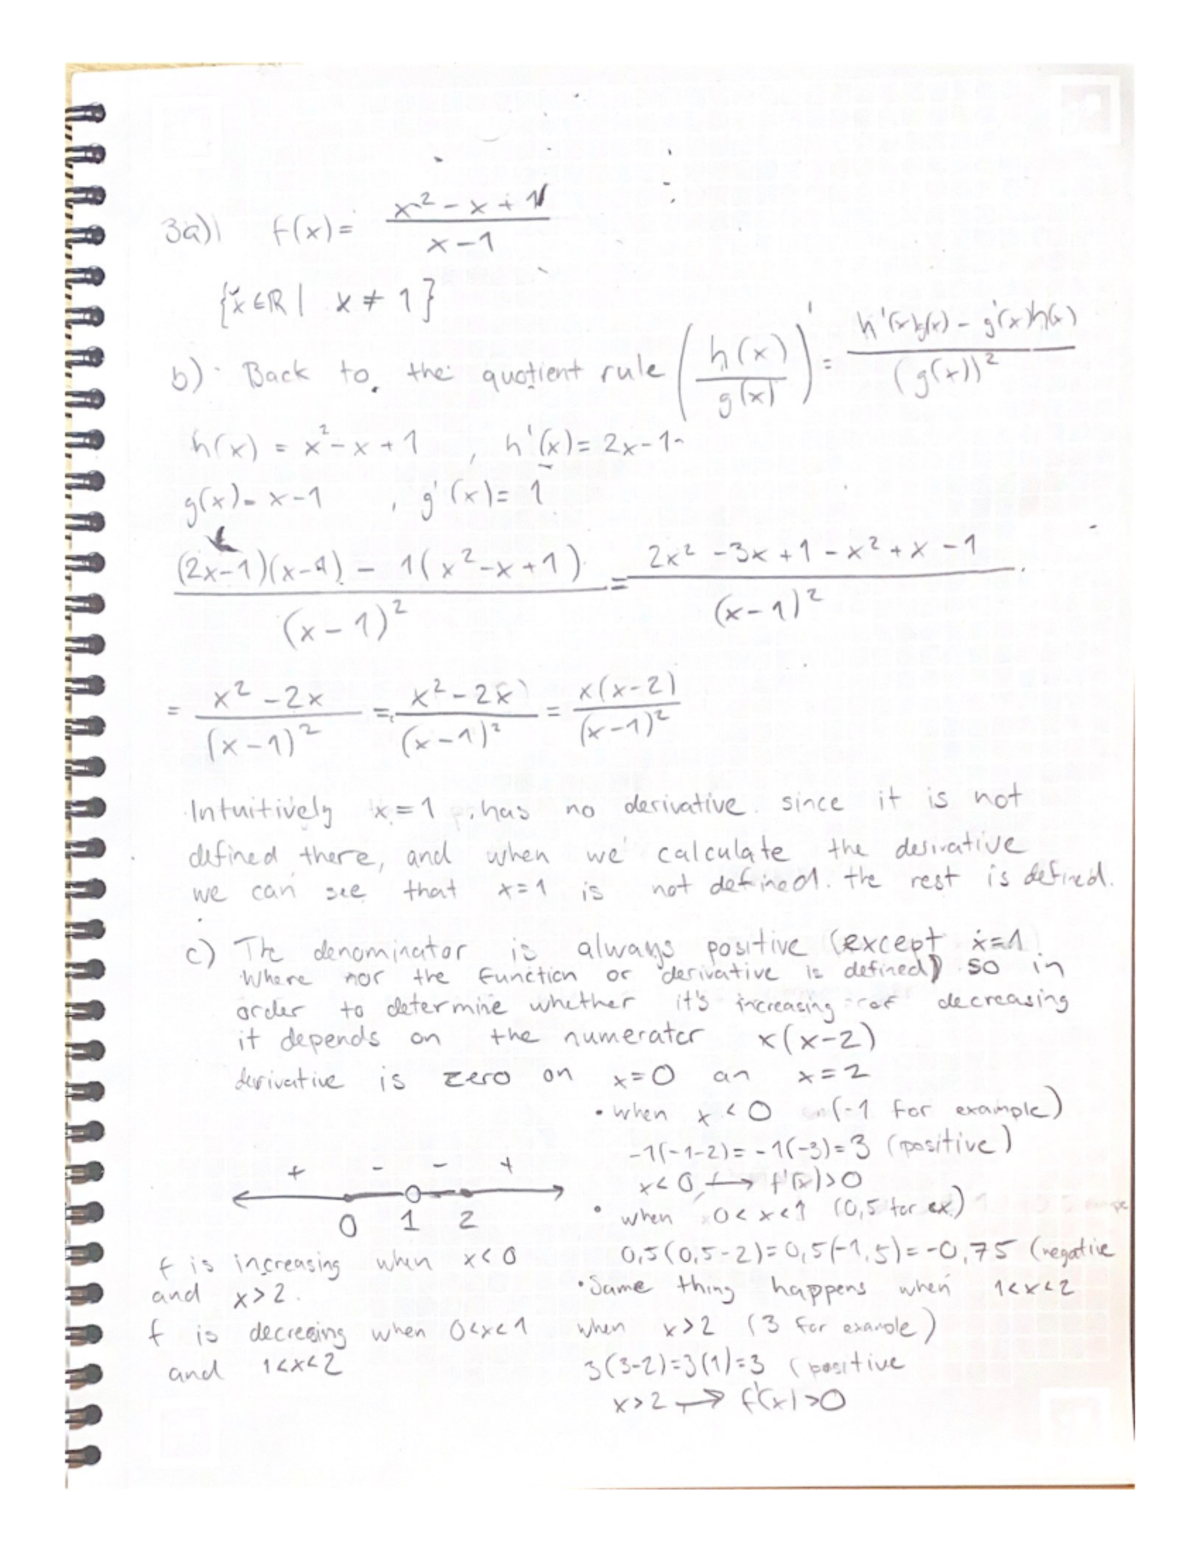 3a) f(x) = (x² - x + 1)/(x - 1)
{x ∈ ℝ | x ≠ 1}
b) Back to the quotient rule (h(x)/g(x))' = (h'(x)g(x) - g'(x)h(x))/(g(x))²
h(x) = x² - x + 1 , h'(x) = 2x - 1
g(x) = x - 1 , g'(x) = 1
((2x-1)(x-1) - 1(x² - x + 1))/(x - 1)² = (2x² - 3x + 1 - x² + x - 1)/(x - 1)²
= (x² - 2x)/(x - 1)² = (x² - 2x)/(x - 1)² = x(x-2)/(x-1)²
Intuitively x = 1 has no derivative since it is not
defined there, and when we calculate the derivative
we can see that x = 1 is not defined. the rest is defined.
c) The denominator is always positive (except x=1
where nor the function or derivative is defined) so in
order to determine whether it's increasing or decreasing
it depends on the numerator x(x-2)
derivative is zero on x=0 an x=2
• when x < 0 (-1 for example)
-1(-1-2) = -1(-3) = 3 (positive)
x < 0 → f'(x) > 0
• when 0 < x < 1 (0,5 for ex)
0,5(0,5-2) = 0,5(-1,5) = -0,75 (negative
• Same thing happens when 1<x<2
when x > 2 (3 for example)
3(3-2) = 3(1) = 3 (positive
x > 2 → f'(x) > 0
+ - - +
0 1 2
f is increasing when x < 0
and x > 2.
f is decreeing when 0<x<1
and 1<x<2